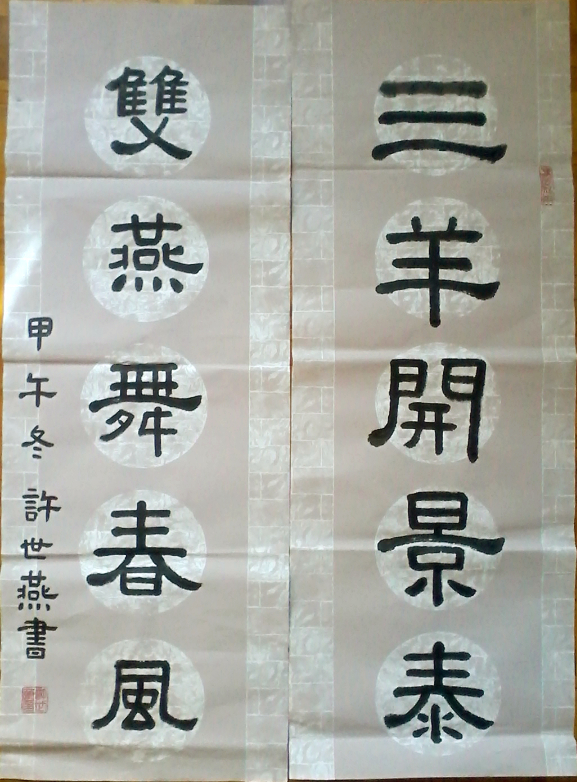 三羊開景泰
雙燕舞春風
甲午冬許世燕書